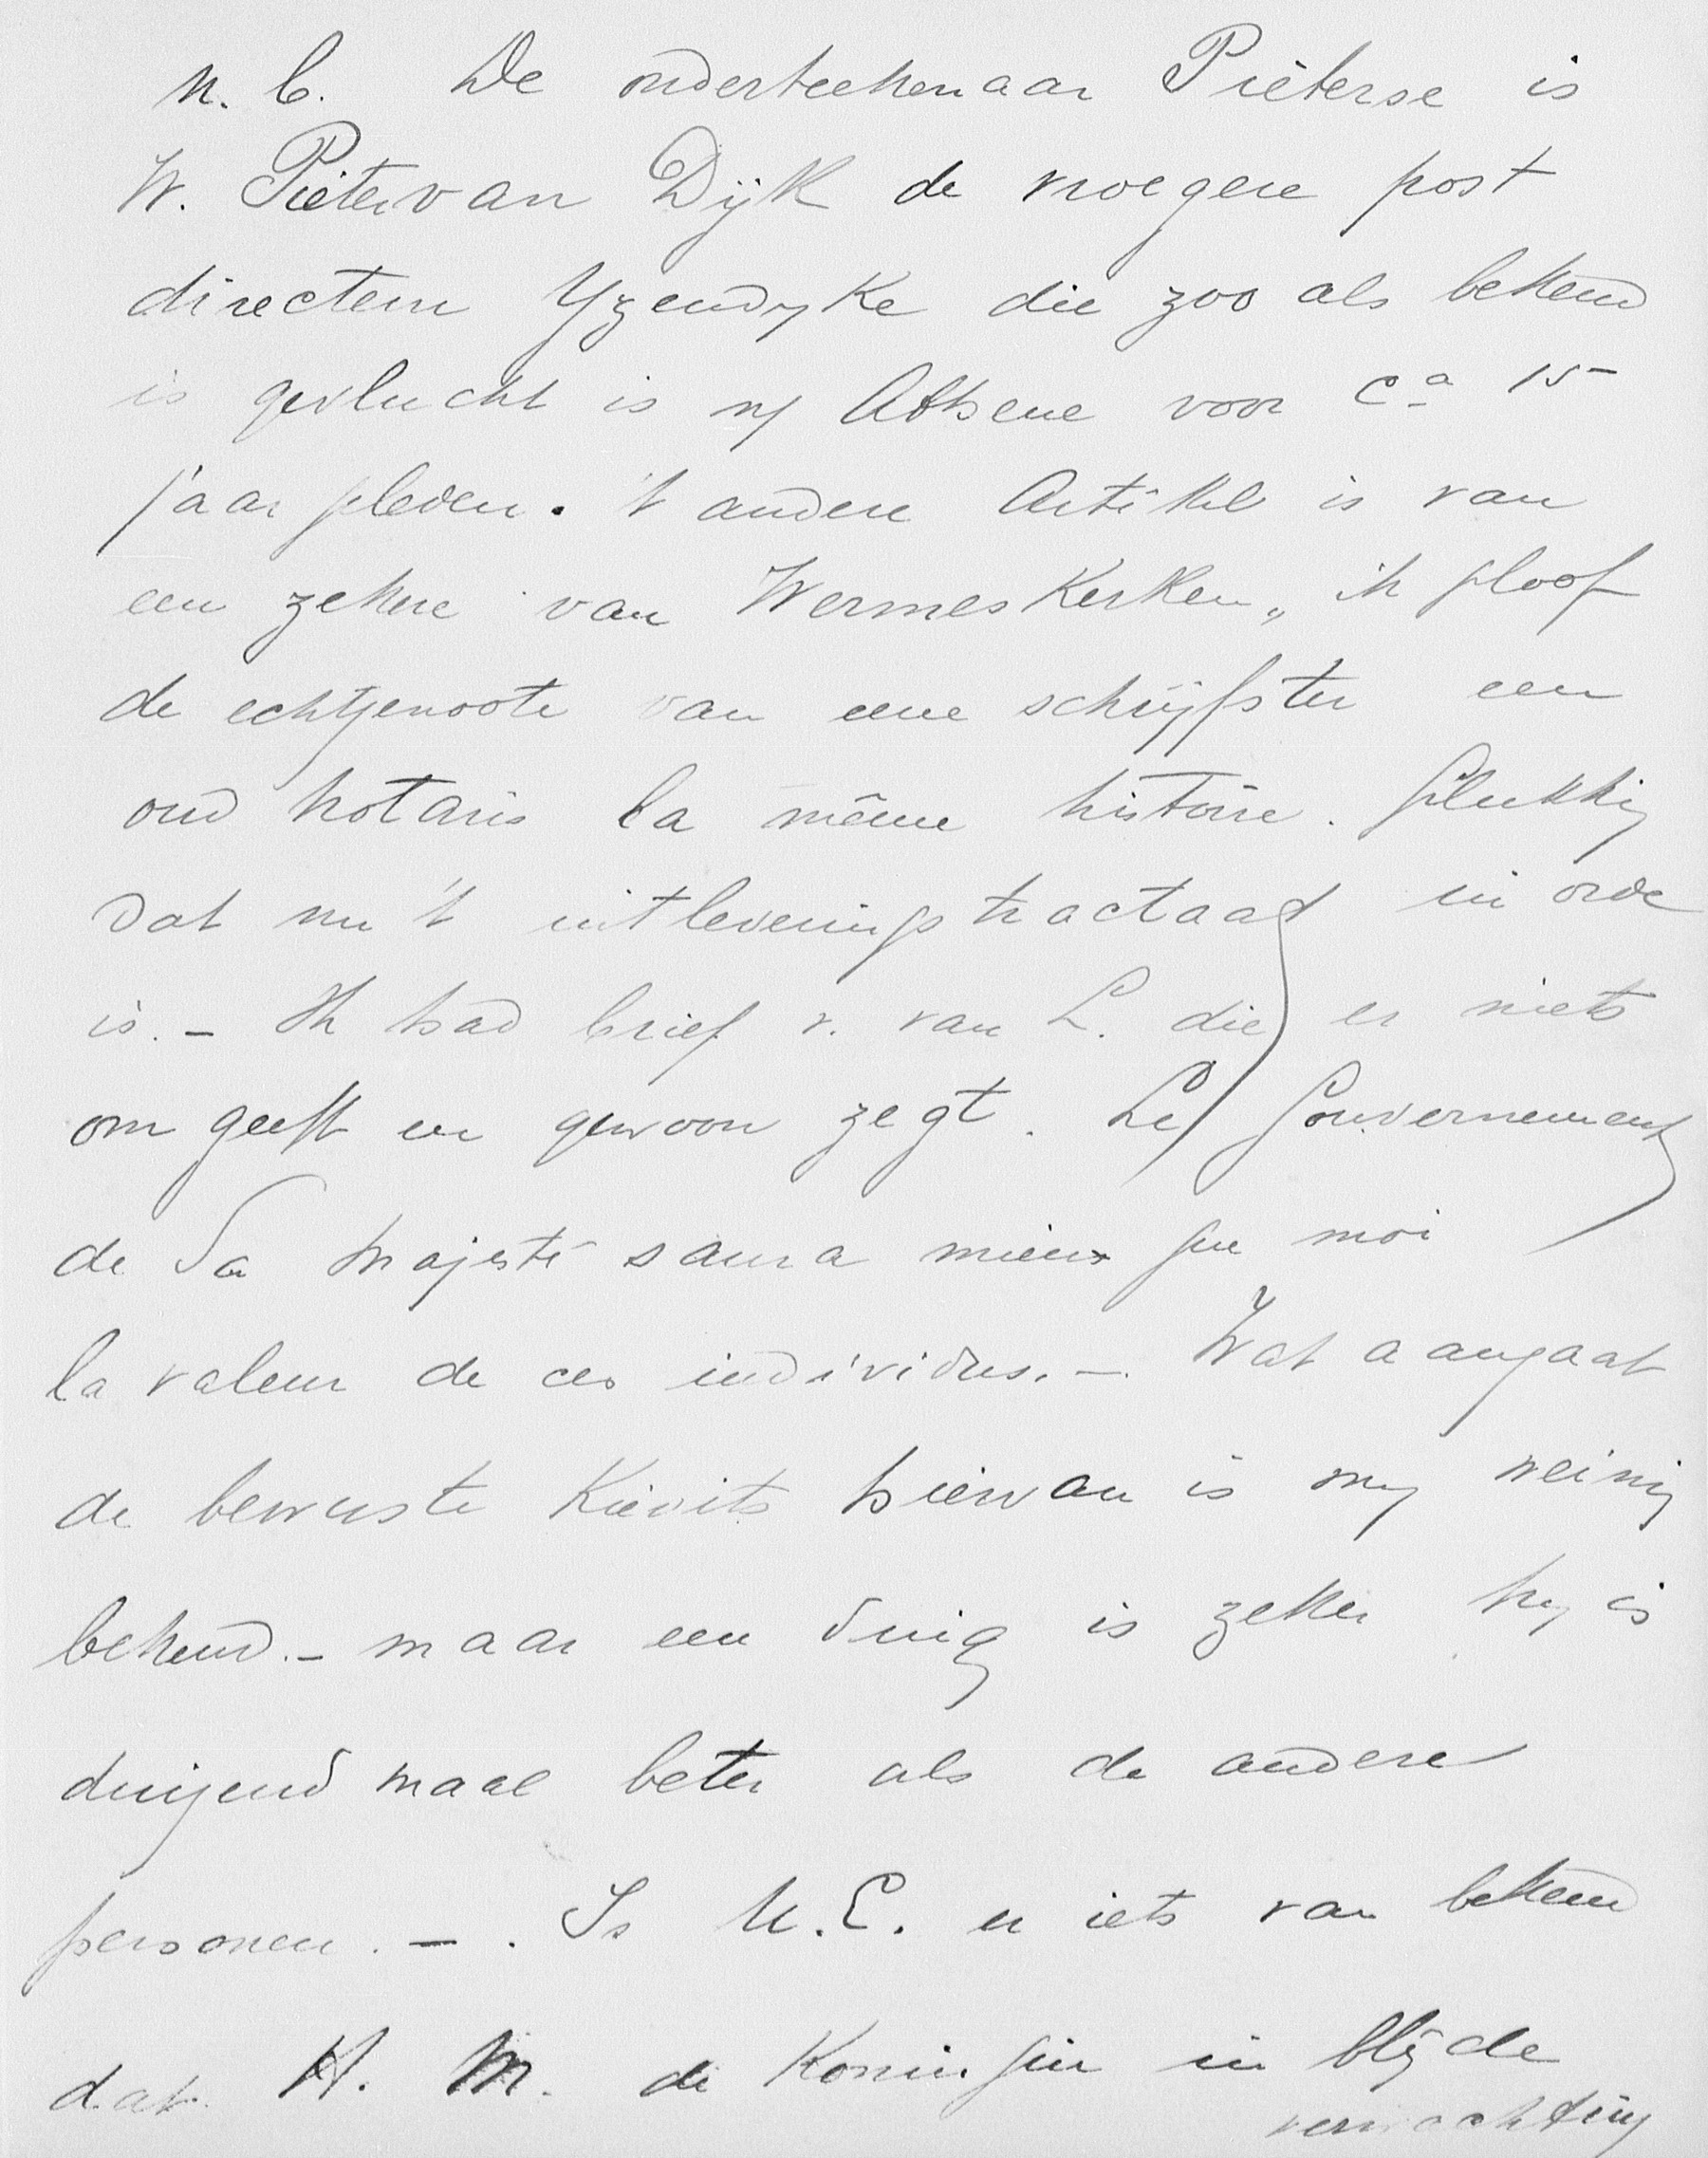 N.B. De onderteekenaar Pieterse is
W. Pieter van Dijk de vroegere post
directeur Yzendyke die zoo als bekend
is gevlucht is ny Athene voor ca 15
jaar geleden. 't andere Artikel is van
een zekere van Wermeskerken, ik gloof
de echtgenoote van eene schrijfster een
oud notaris la même histoire. Gelukkig
dat nu 't uitleverings tractaat in orde
is. - Ik had brief v. van L. die er niets
om geeft en gewoon zegt. Le Gouvernement
de Sa Majesté saura mieux que moi
la valeur de ces individus. - Wat aangaat
de bewuste Kievits hiervan is my weinig
bekend. - maar een ding is zeker hy is
duizend maal beter als de andere
personen. - . Is U.E. er iets van bekend
dat H. M. de Koningin in blijde
verwachting